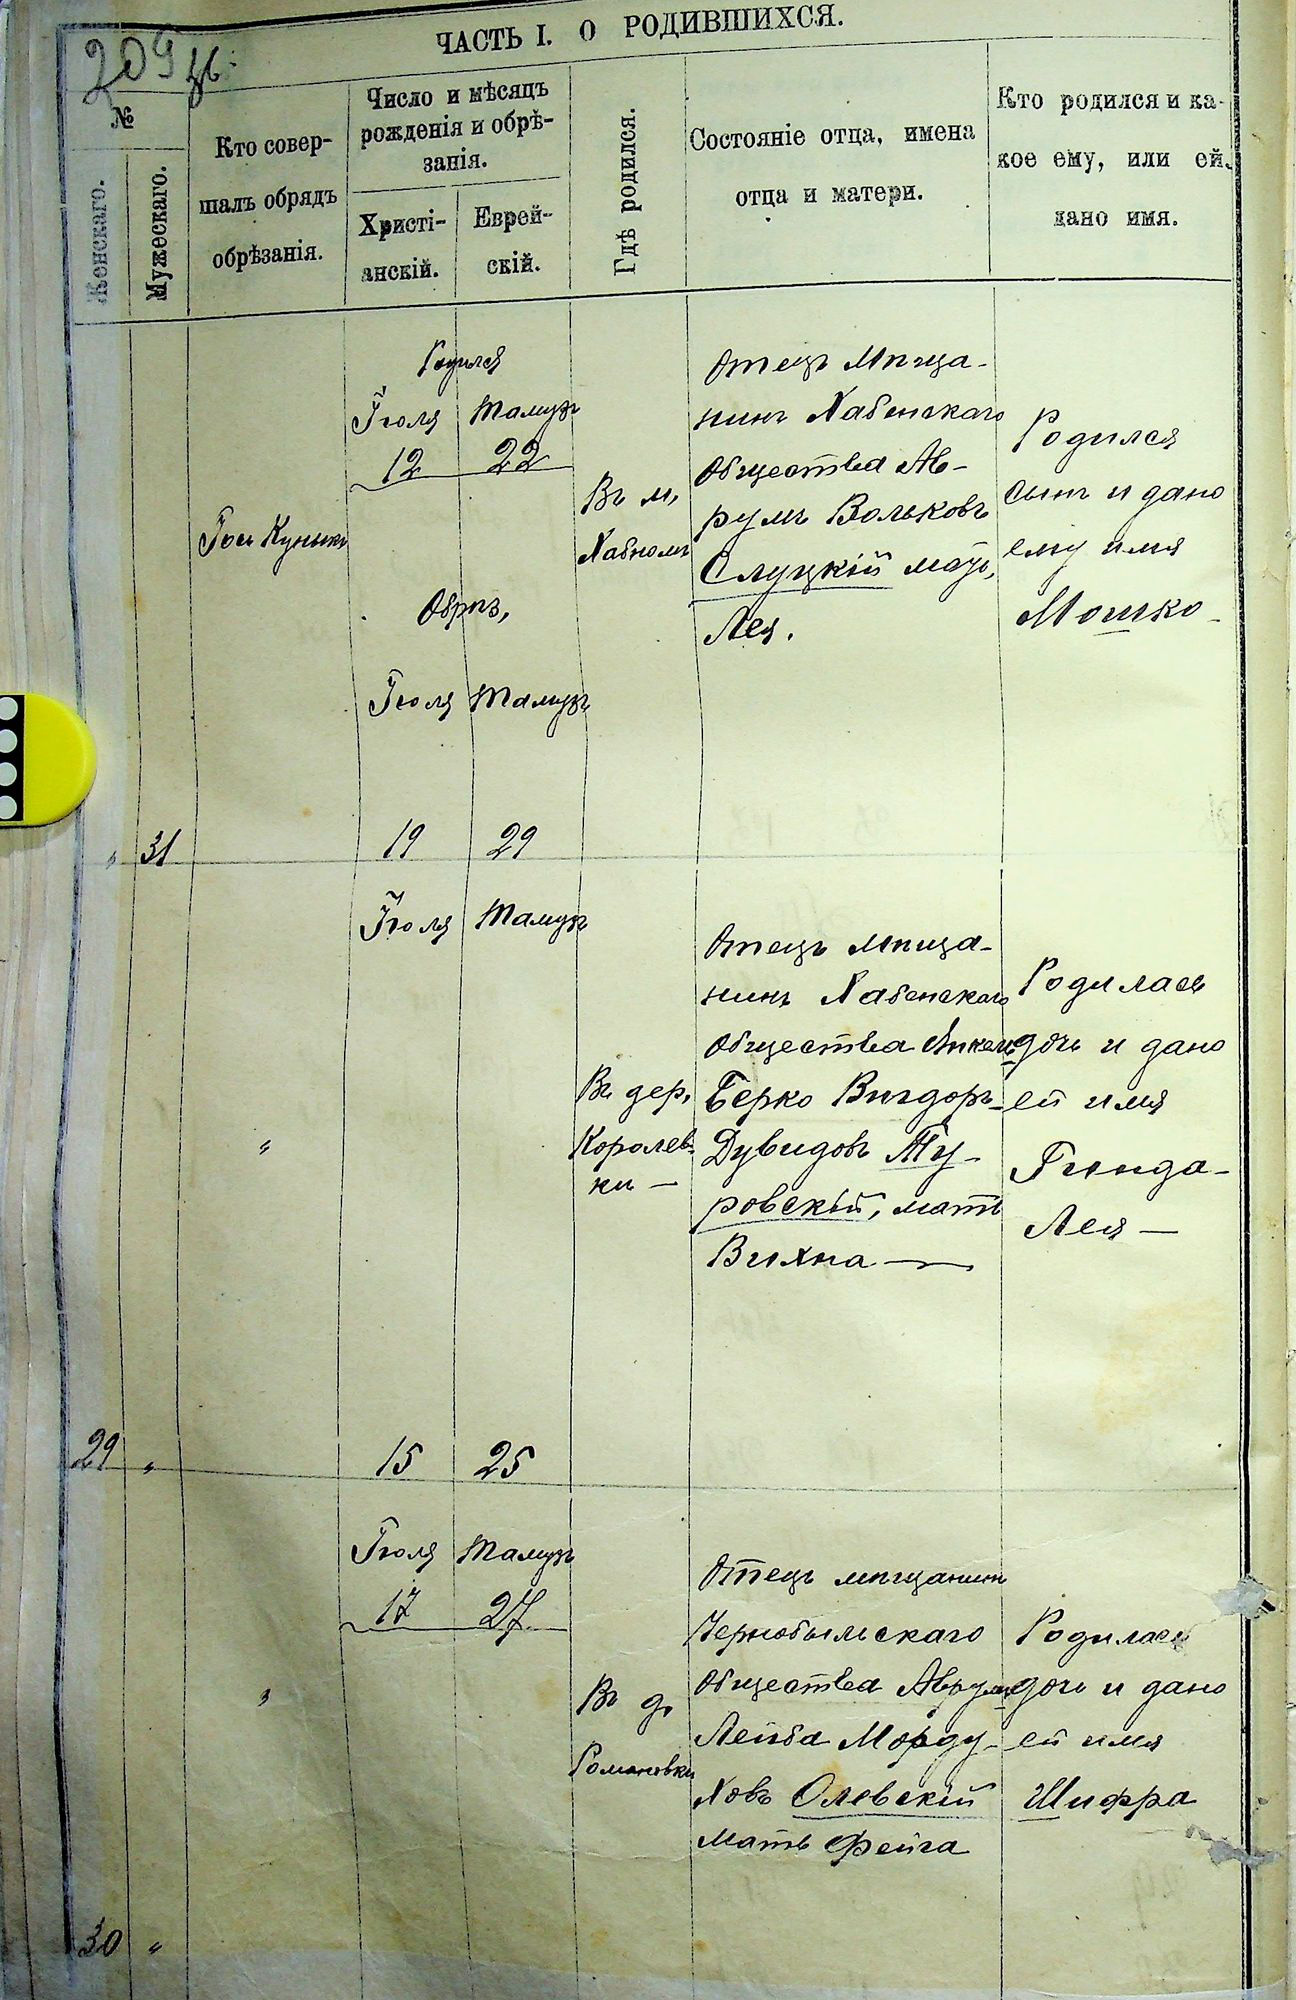 ЧАСТЬ I. О РОДИВШИХСЯ.
209
№
Женскаго.
Мужескаго.
Кто совер-
шалъ обрядъ
обрѣзанія.
Число и мѣсяцъ
рожденія и обрѣ-
занія.
Христі-
анскій.
Еврей-
скій.
Гдѣ родился.
Состояніе отца, имена
отца и матери.
Кто родился и ка-
кое ему, или ей,
дано имя.
„ 31
Родился
Іюля Тамузъ
12 22
Обрѣз,
Іюля Тамузъ
19 29
Въ м,
Хабномъ
Отецъ Мѣща-
нинъ Хабенскаго
Общества Ав-
румъ Вольковъ
Слуцкій мать,
Лея.
Родился
сынъ и дано
ему имя
Мошко
29 „
„
Іюля Тамузъ
15 25
Въ дер,
Королев-
ки —
Отецъ мѣща-
нинъ Хабенскаго
Общества
Берко Вигдоръ-
Дувидовъ Ту-
ровскій, мать
Вихна —
Родилась
дочь и дано
ей имя
Гинда-
Лея —
30 „
„
Іюля Тамузъ
17 27
Въ д,
Романовки
Отецъ мѣщанинъ
Чернобыльскаго
Общества Аврумъ
Лейба Морду-
ховъ Олевскій
мать Фейга
Родилась
дочь и дано
ей имя
Шифра